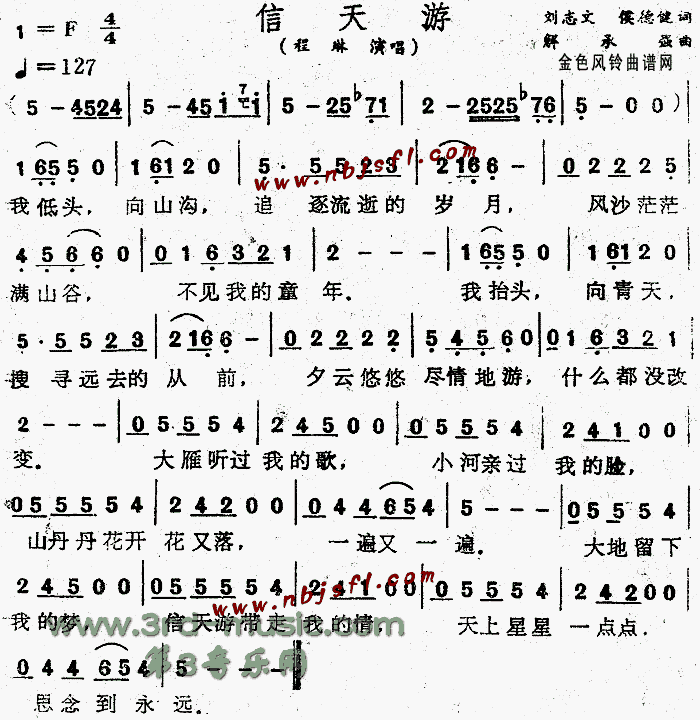 信天游
1=F 4/4
(程琳 演唱)
刘志文 侯德健词
解承强曲
♩=127
金色风铃曲谱网
(5 - 4524 | 5 - 45i 7 i | 5 - 25 ♭71 | 2 - 2525 ♭76 | 5 - 0 0)
1 655 0 | 161 2 0 | 5 · 5 5 23 | 2166 - | 0 2 2 2 5
www.nbjsfl.com
我低头, 向山沟, 追 逐流逝的 岁 月, 风沙茫茫
4 5 6 6 0 | 0 1 6 3 2 1 | 2 - - - | 1 655 0 | 161 2 0
满山谷, 不见我的童 年. 我抬头, 向青天,
5 · 5 5 2 3 | 2166 - | 0 2 2 2 2 | 5 4 5 6 0 | 0 1 6 3 2 1
搜 寻远去的 从 前, 夕云悠悠 尽情地游, 什么都没改
2 - - - | 0 5 5 5 4 | 2 4 5 0 0 | 0 5 5 5 4 | 2 4 1 0 0
变. 大雁听过 我的歌, 小河亲过 我的脸,
0 5 5 5 5 5 4 | 2 4 2 0 0 | 0 4 4 6 5 4 | 5 - - - | 0 5 5 5 4
山丹丹花开 花又落, 一遍又 一 遍. 大地留下
2 4 5 0 0 | 0 5 5 5 5 4 | 2 4 1 0 0 | 0 5 5 5 4 | 2 4 2 0 0
www.nbjsfl.com
我的梦, 信天游带走 我的情 天上星星 一点点.
www.3rd-music.com
第3音乐网
0 4 4 6 5 4 | 5 - - -
思念到永 远.